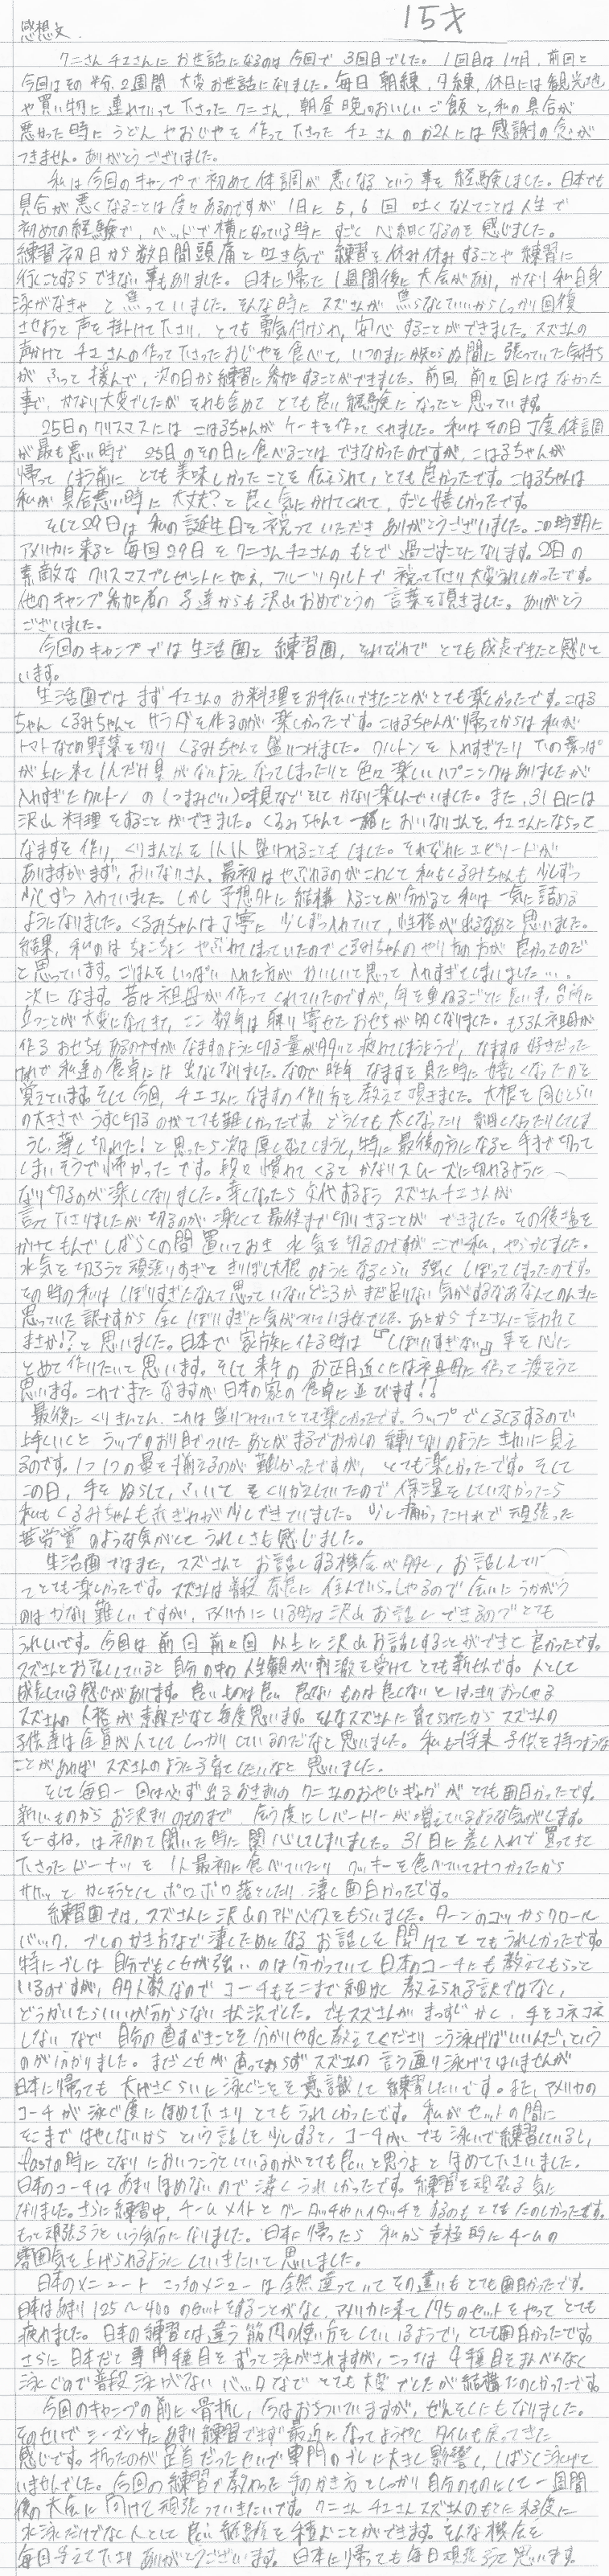 15才
感想文
クニさん チエさんに お世話になるのは 今回で 3回目でした。1回目は 1ヶ月、前回と
今回はその半分、2週間 大変お世話になりました。毎日 朝練、夕練、休日には観光地
や買い物に 連れていって下さった クニさん、朝昼晩のおいしい ご飯と、私の具合が
悪かった時に うどん やおじやを 作って下さった チエさんの お2人には 感謝の念が
つきません。ありがとうございました。
私は今回のキャンプで初めて体調が悪くなる という事を 経験しました。日本でも
具合が悪くなることは度々あるのですが 1日に5,6回 吐くなんてことは人生で
初めての経験で、ベッドで横になっている時に すごく 心細くなるのを感じました。
練習初日から数日間頭痛と吐き気で 練習を休み休みすることや練習に
行くことすらできない事もありました。日本に帰った1週間後に大会があり、かなり私自身
泳がなきゃ と焦っていました。そんな時に スズさんが 焦らなくていいからしっかり回復
させようと声を掛けて下さり、とても勇気付けられ、安心することができました。スズさんの
声かけと チエさんの作って下さったおじやを食べて、いつのまにか知らぬ間に張っていた気持ち
が ふっと 緩んで、次の日から練習に参加することができました。前回、前々回にはなかった
事で、かなり大変でしたが それも含めて とても良い経験になったと思っています。
25日のクリスマスには こはるちゃんが ケーキを作ってくれました。私はその日丁度体調
が最も悪い時で 25日のその日に食べることは できなかったのですが、こはるちゃんが
帰ってしまう前に とても美味しかったことを伝えられて、とても良かったです。こはるちゃんは
私が具合悪い時に 大丈夫?と 良く気にかけてくれて、すごく嬉しかったです。
そして29日は 私の誕生日を祝っていただき ありがとうございました。この時期に
アメリカに来ると 毎回29日をクニさんチエさんのもとで過ごすことになります。
素敵な クリスマスプレゼントに加え、フルーツタルトで 祝って下さり大変うれしかったです。
他のキャンプ参加者の子達からも沢山おめでとうの言葉を頂きました。ありがとう
ございました。
今回のキャンプでは 生活面と 練習面、それぞれで とても成長できたと感じて
います。
生活面では まず チエさんの お料理をお手伝いできたことがとても楽しかったです。こはる
ちゃん くるみちゃんと サラダを作るのが 楽しかったです。こはるちゃんが帰ってからは 私が
トマトなどの野菜を切り くるみちゃんと盛りつけました。クルトンを入れすぎたり 下の葉っぱ
が上に来て 1人だけ具がないように なってしまったりと色々楽しいハプニングはありましたが
入れすぎたクルトンの(つまみぐい)味見などをして かなり楽しんでいました。また、31日には
沢山 料理をすることができました。くるみちゃんと一緒においなりさんを、チエさんにならって
なますを作り、くりきんとんを1人1人盛りつけることもしました。それぞれにエピソードが
ありますがまず、おいなりさん。最初はやぶれるのがこわくて私もくるみちゃんも少しずつ
少しずつ入れていました。しかし予想外に結構入ることが分かると私は一気に詰める
ようになりました。くるみちゃんは丁寧に 少しずつ入れていて、性格が出るなあと思いました。
結果、私のは ちょこちょこ やぶれてしまっていたので くるみちゃんのやり方の方が 良かったのだ
と思っています。ごはんをいっぱい入れた方がおいしいと思って入れすぎてしまいました…。
次に なます。昔は祖母が作ってくれていたのですが、年を重ねるごとに 台所に
立つことが大変になってきて、ここ数年は取り寄せたおせちが多くなりました。もちろん祖母が
作る おせちも あるのですが なますのように切る量が多いと疲れてしまうようで、なますは好きだった
けれど私達の食卓には 出なくなりました。なので昨年 なますを見た時に嬉しくなったのを
覚えています。そして今回、チエさんになますの作り方を教えて頂きました。大根を同じくらい
の大きさで うすく切るのがとても難しかったです。どうしても太くなったり 細くなったりしてしま
うし、薄く切れた!と思ったら次は厚くなってしまうし、特に最後の方になると手まで切って
しまいそうで怖かったです。段々慣れてくると かなりスムーズに切れるように
なり切るのが楽しくなりました。辛くなったら交代するよう スズさんチエさんが
言って下さりましたが 切るのが楽しくて最後まで切りきることが できました。その後塩を
かけてもんでしばらくの間置いておき 水気を切るのですが ここで私、やらかしました。
水気を切ろうと頑張りすぎて 切り干し大根のようになるくらい 強くしぼってしまったのです。
その時の私は しぼりすぎたなんて思っていないどころか まだ足りない気がするなあなんてのんきに
思っていた訳ですから 全くしぼりすぎに気がついていませんでした。あとからチエさんに言われて
まさか!?と思いました。日本で家族に作る時は『しぼりすぎない』事を心に
とめて作りたいと思います。そして来年のお正月近くには祖母に作って渡そうと
思います。これでまた なますが日本の家の食卓に並びます!!
最後に くりきんとん、これは盛りつけていてとても楽しかったです。ラップでくるくるするので
上手くいくと ラップのおり目でついた あとがまるでおかしの練り切りのように きれいに見え
るのです。1つ1つの量を揃えるのが難しかったですが、とても楽しかったです。そして
この日、手をぬらして、ふいて をくりかえしていたので 保湿をしていなかったら
私も くるみちゃんも あかぎれが少しできていました。少し痛かったけれど 頑張った
苦労賞のような気がして うれしさも感じました。
生活面ではまた、スズさんと お話しする機会が多く、お話しして
てとても楽しかったです。スズさんは普段 奈良に住んでいらっしゃるので会いに うかがう
のはかなり難しいですが、アメリカにいる時は 沢山お話しできるのでとても
うれしいです。今回は前回前々回以上に沢山お話しすることができて 良かったです。
スズさんとお話ししていると 自分の中の人生観が刺激を受けてとても新せんです。人として
成長している感じがあります。良いものは良い 良くないものは良くない とはっきりおっしゃる
スズさんの人格が 素敵だなと毎度思います。そんなスズさんに育てられたから スズさんの
子供達は全員が人としてしっかりしているのだなと思いました。私も将来子供を持つような
ことがあれば スズさんのように子育てしたいなと思いました。
そして毎日一回は必ず出る クニさんのおやじギャグが とても面白かったです。
新しいものからお決まりのものまで 会う度にレパートリーが増えているような気がします。
そーすね、は初めて聞いた時に関心してしまいました。31日に差し入れで買ってきて
下さったドーナツを1人最初に食べていたり クッキーを食べていてみつかったから
サササッと かくそうとしてボロボロ落としたり、凄く面白かったです。
練習面では、スズさんに沢山のアドバイスをもらいました。ターンのコツからクロール
バック、ブレのかき方などで凄くためになるお話しを聞けてとてもうれしかったです。
特にブレは自分でもくせが強いのは分かっていて日本のコーチにも教えてもらって
いるのですが、多人数なのでコーチもそこまで細かく教えられる訳ではなく、
どうかいたらいいか分からない状況でした。でもスズさんが まっすぐかく、手をコネコネ
しない などで 自分の直すべきことを分かりやすく教えてくださり こう泳げばいいんだという
のが分かりました。まだくせが直っておらず スズさんの言う通り泳げてはいませんが
日本に帰っても 大げさくらいに泳ぐことを意識して練習したいです。また、アメリカの
コーチが泳ぐ度にほめて下さり とてもうれしかったです。私がセットの間に
そこまではやくないから という話しを少しすると、コーチが、でも泳いで練習しているし、
fastの時にとなりにおいつこうとしているのがとても良いと思うよとほめて下さいました。
日本のコーチはあまりほめないので凄くうれしかったです。練習を頑張る気に
なりました。さらに練習中、チームメイトと グータッチやハイタッチをするのもとてもたのしかったです。
もっと頑張ろうという気分になりました。日本に帰ったら 私から積極的にチームの
雰囲気を上げられるようにしていきたいと思いました。
日本のメニューと こっちのメニューは全然違っていて その違いもとても面白かったです。
日本はあまり125〜400のセットをすることがなく、アメリカに来て175のセットをやってとても
疲れました。日本の練習とは違う筋肉の使い方をしているようで、とても面白かったです。
さらに日本だと専門種目をずっと泳がされますが、こっちは4種目まんべんなく
泳ぐので普段泳がない バックなどで とても大変でしたが結構たのしかったです。
今回のキャンプの前に 骨折し、今はおちついていますが、ぜんそくにもなりました。
そのせいでシーズン中にあまり練習できず最近になってようやくタイムも戻ってきた
感じです。折ったのが左肩だったせいで専門のブレに大きく影響し、しばらく泳げて
いませんでした。今回の練習で教わった手のかき方をしっかり自分のものにして一週間
後の大会に向けて頑張っていきたいです。クニさんチエさんスズさんのもとに来る度に
水泳だけでなく人として良い経験を積むことができます。そんな機会を
毎回与えて下さりありがとうございます。日本に帰っても毎日頑張ろうと思います。